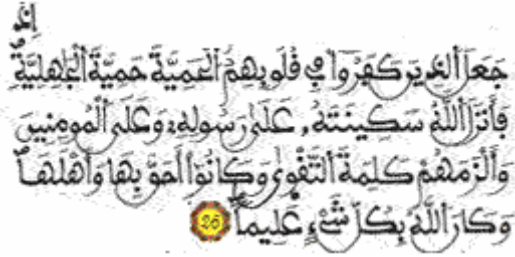 إِذْ
جَعَلَ ٱلذِينَ كَفَرُوا۟ فِے قُلُوبِهِمُ ٱلْحَمِيَّةَ حَمِيَّةَ ٱلْجَٰهِلِيَّةِ
فَأَنزَلَ ٱللَّهُ سَكِينَتَهُۥ عَلَىٰ رَسُولِهِۦ وَعَلَى ٱلْمُومِنِينَ
وَأَلْزَمَهُمْ كَلِمَةَ ٱلتَّقْوَىٰ وَكَانُوٓا۟ أَحَقَّ بِهَا وَأَهْلَهَا
وَكَانَ ٱللَّهُ بِكُلِّ شَےْءٍ عَلِيماً 26